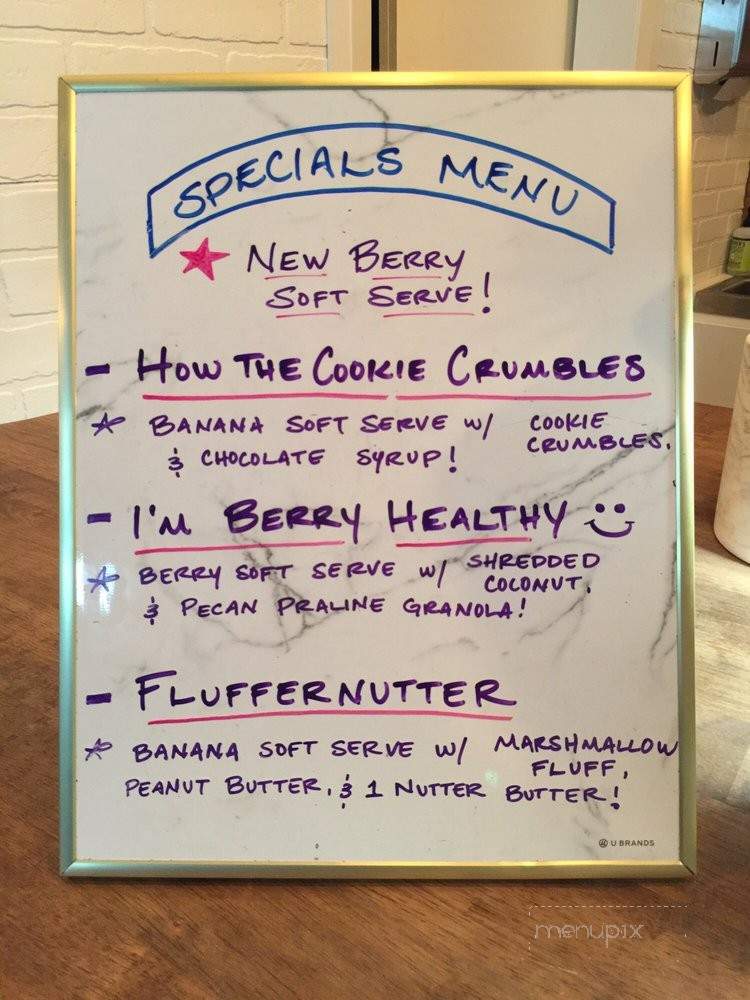 SPECIALS MENU
NEW BERRY
SOFT SERVE!
- HOW THE COOKIE CRUMBLES
BANANA SOFT SERVE W/ COOKIE
CRUMBLES,
& CHOCOLATE SYRUP!
- I'M BERRY HEALTHY
BERRY SOFT SERVE W/ SHREDDED
COCONUT,
& PECAN PRALINE GRANOLA!
- FLUFFERNUTTER
BANANA SOFT SERVE W/ MARSHMALLOW
FLUFF,
PEANUT BUTTER, & 1 NUTTER BUTTER!
U BRANDS
menupix